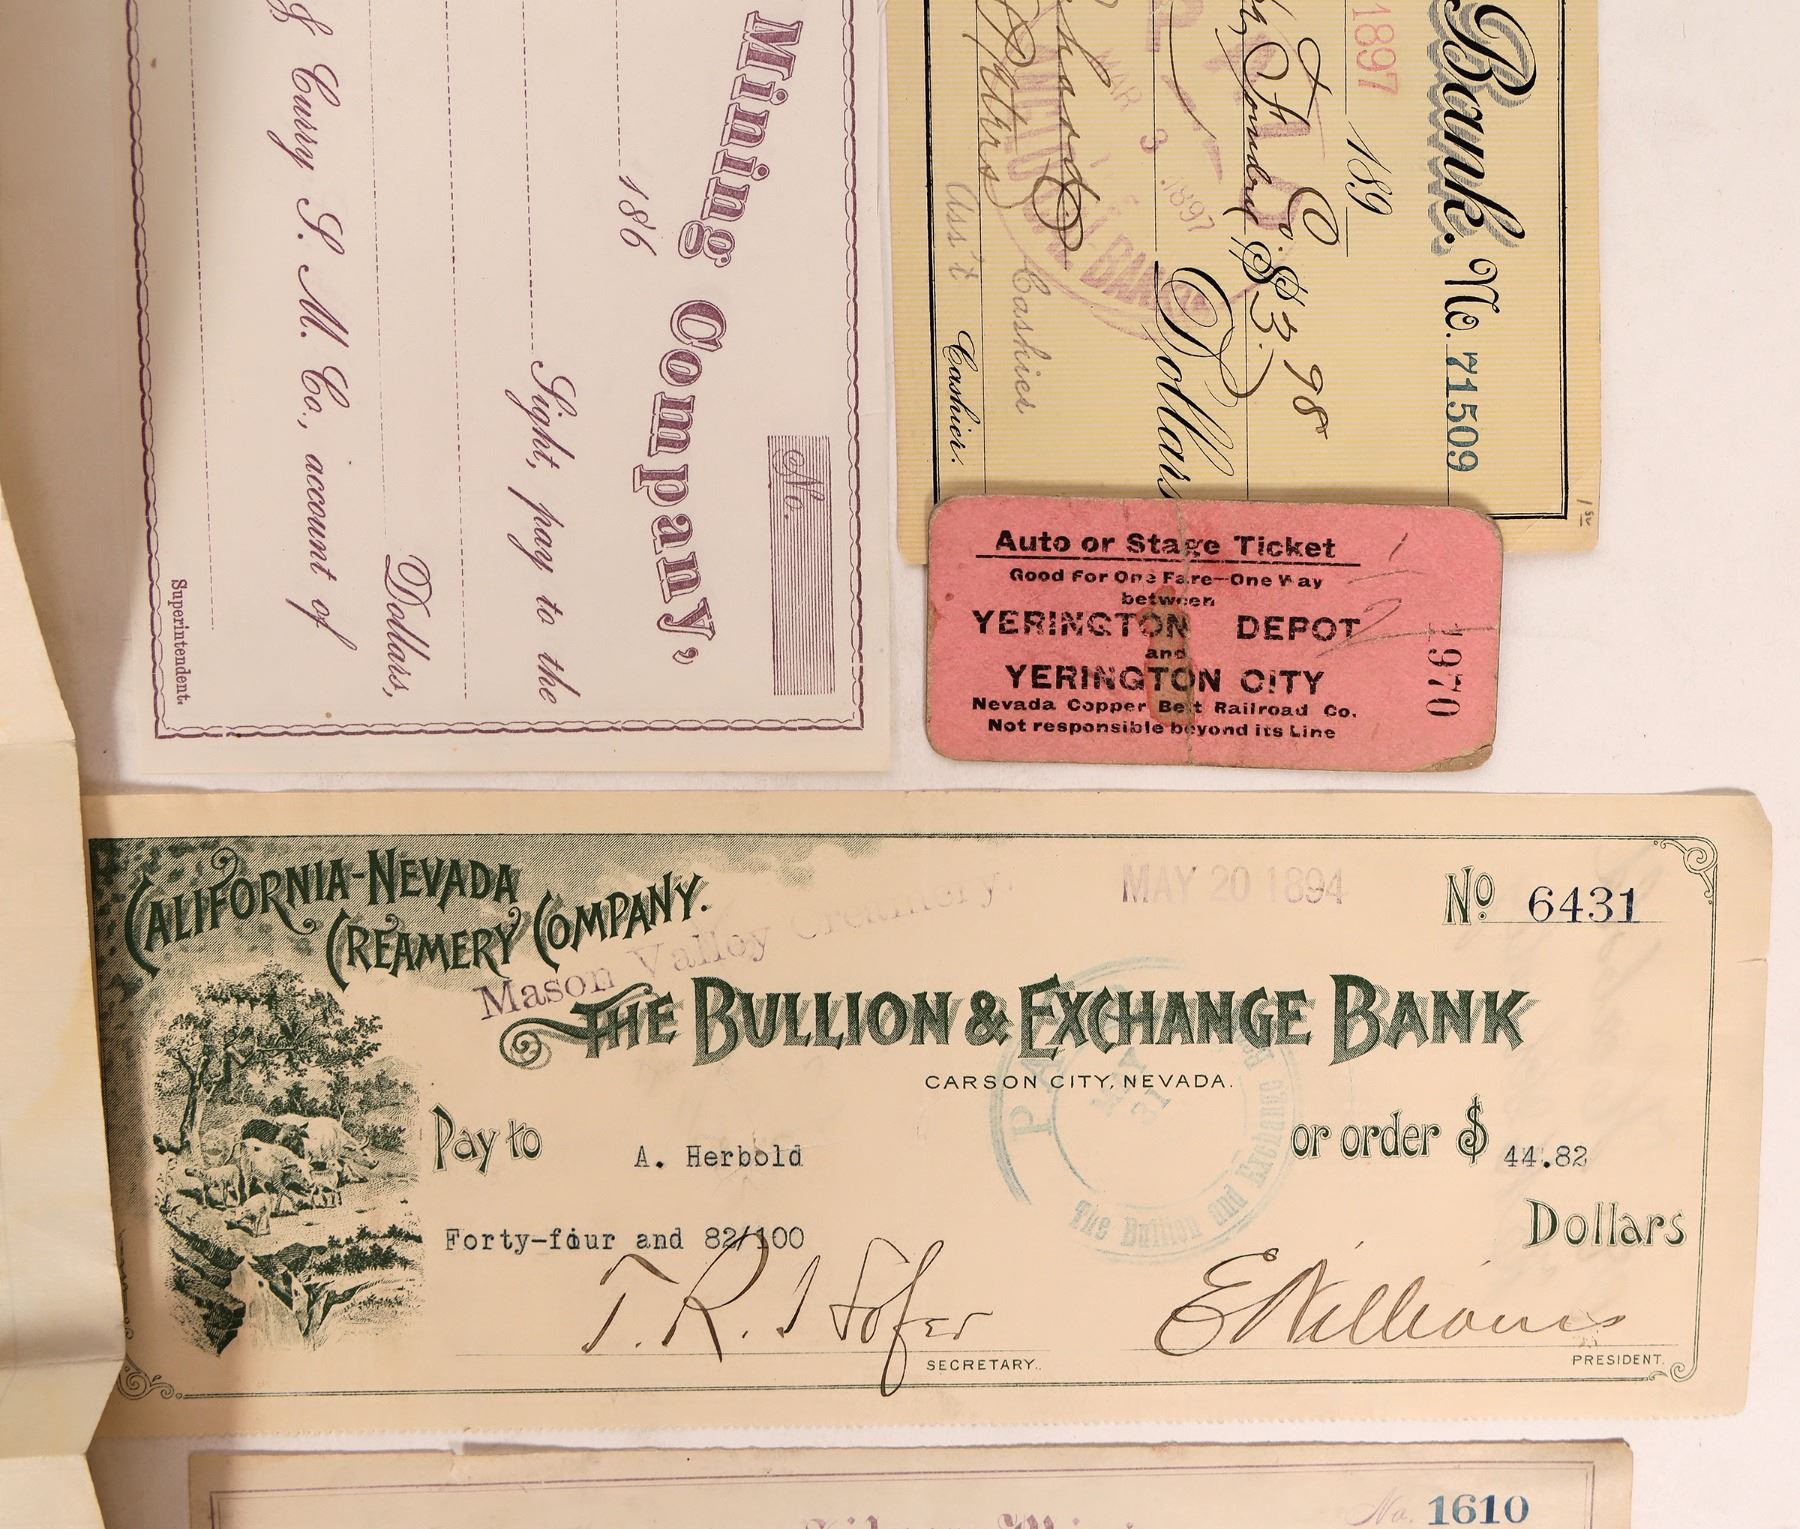 Mining Company,
No.
186
Sight, pay to the
Dollars,
Curry S. M. Co., account of
Superintendent.
Bank. No. 71509
1897
189
Co. $3.98
Dollars
MAR 3 1897
Cashier
Ass't Cashier.
Auto or Stage Ticket
Good For One Fare—One Way
between
YERINGTON DEPOT
and
YERINGTON CITY
Nevada Copper Belt Railroad Co.
Not responsible beyond its Line
1970
CALIFORNIA-NEVADA
CREAMERY COMPANY.
Mason Valley Creamery.
MAY 20 1894
No 6431
THE BULLION & EXCHANGE BANK
CARSON CITY, NEVADA.
PAID
MAY 31
The Bullion and Exchange
Pay to A. Herbold or order $ 44.82
Forty-four and 82/100 Dollars
T. R. Hofer
SECRETARY.
E Williams
PRESIDENT.
No. 1610